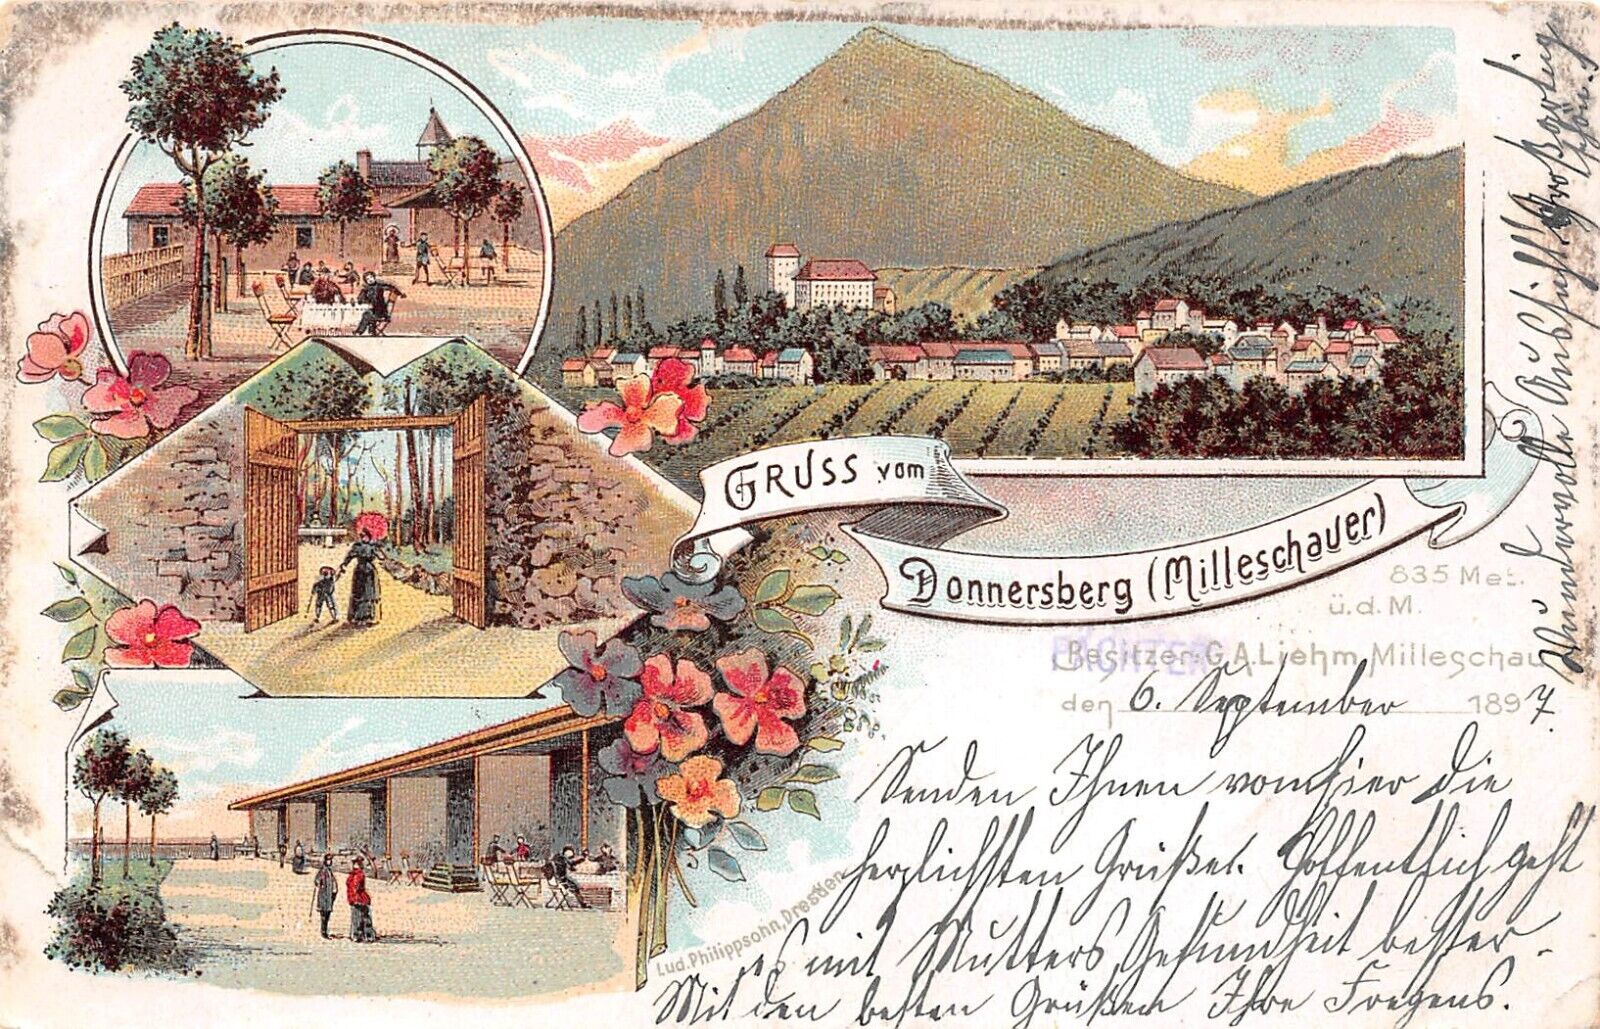 GRUSS vom
Donnersberg (Milleschauer)
835 Met.
ü.d.M.
Besitzer: G.A. Liehm, Milleschau
PÄCHTER
den 6. September 1897.
Senden Ihnen von hier die
herzlichsten Grüße. Hoffentlich geht
es mit Mutters Gesundheit besser.
Mit den besten Grüßen Ihre
Wundervolle Aussicht!!! Großartig
schön!
Lud. Philippsohn, Dresden